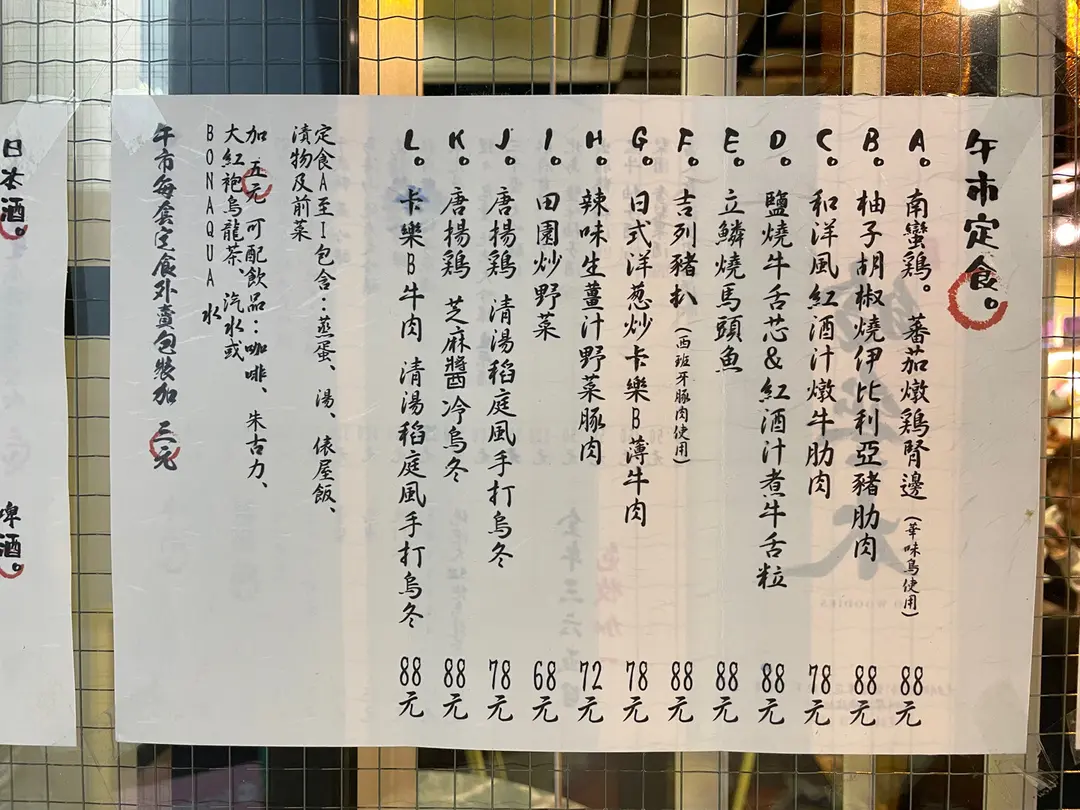 午市定食。
A。南蠻鷄。蕃茄燉鷄腎邊(華味鳥使用) 88元
B。柚子胡椒燒伊比利亞豬肋肉 88元
C。和洋風紅酒汁燉牛肋肉 78元
D。鹽燒牛舌芯&紅酒汁煮牛舌粒 88元
E。立鱗燒馬頭魚 88元
F。吉列豬扒(西班牙豚肉使用) 88元
G。日式洋葱炒卡樂B薄牛肉 78元
H。辣味生薑汁野菜豚肉 72元
I。田園炒野菜 68元
J。唐揚鷄 清湯稻庭風手打烏冬 78元
K。唐揚鷄 芝麻醬冷烏冬 88元
L。卡樂B牛肉 清湯稻庭風手打烏冬 88元
定食A至I包含:蒸蛋、湯、俵屋飯、
漬物及前菜
加五元可配飲品:咖啡、朱古力、
大紅袍烏龍茶、汽水或
BONAQUA水
午市每套定食外賣包裝加三元
日本酒。
啤酒。